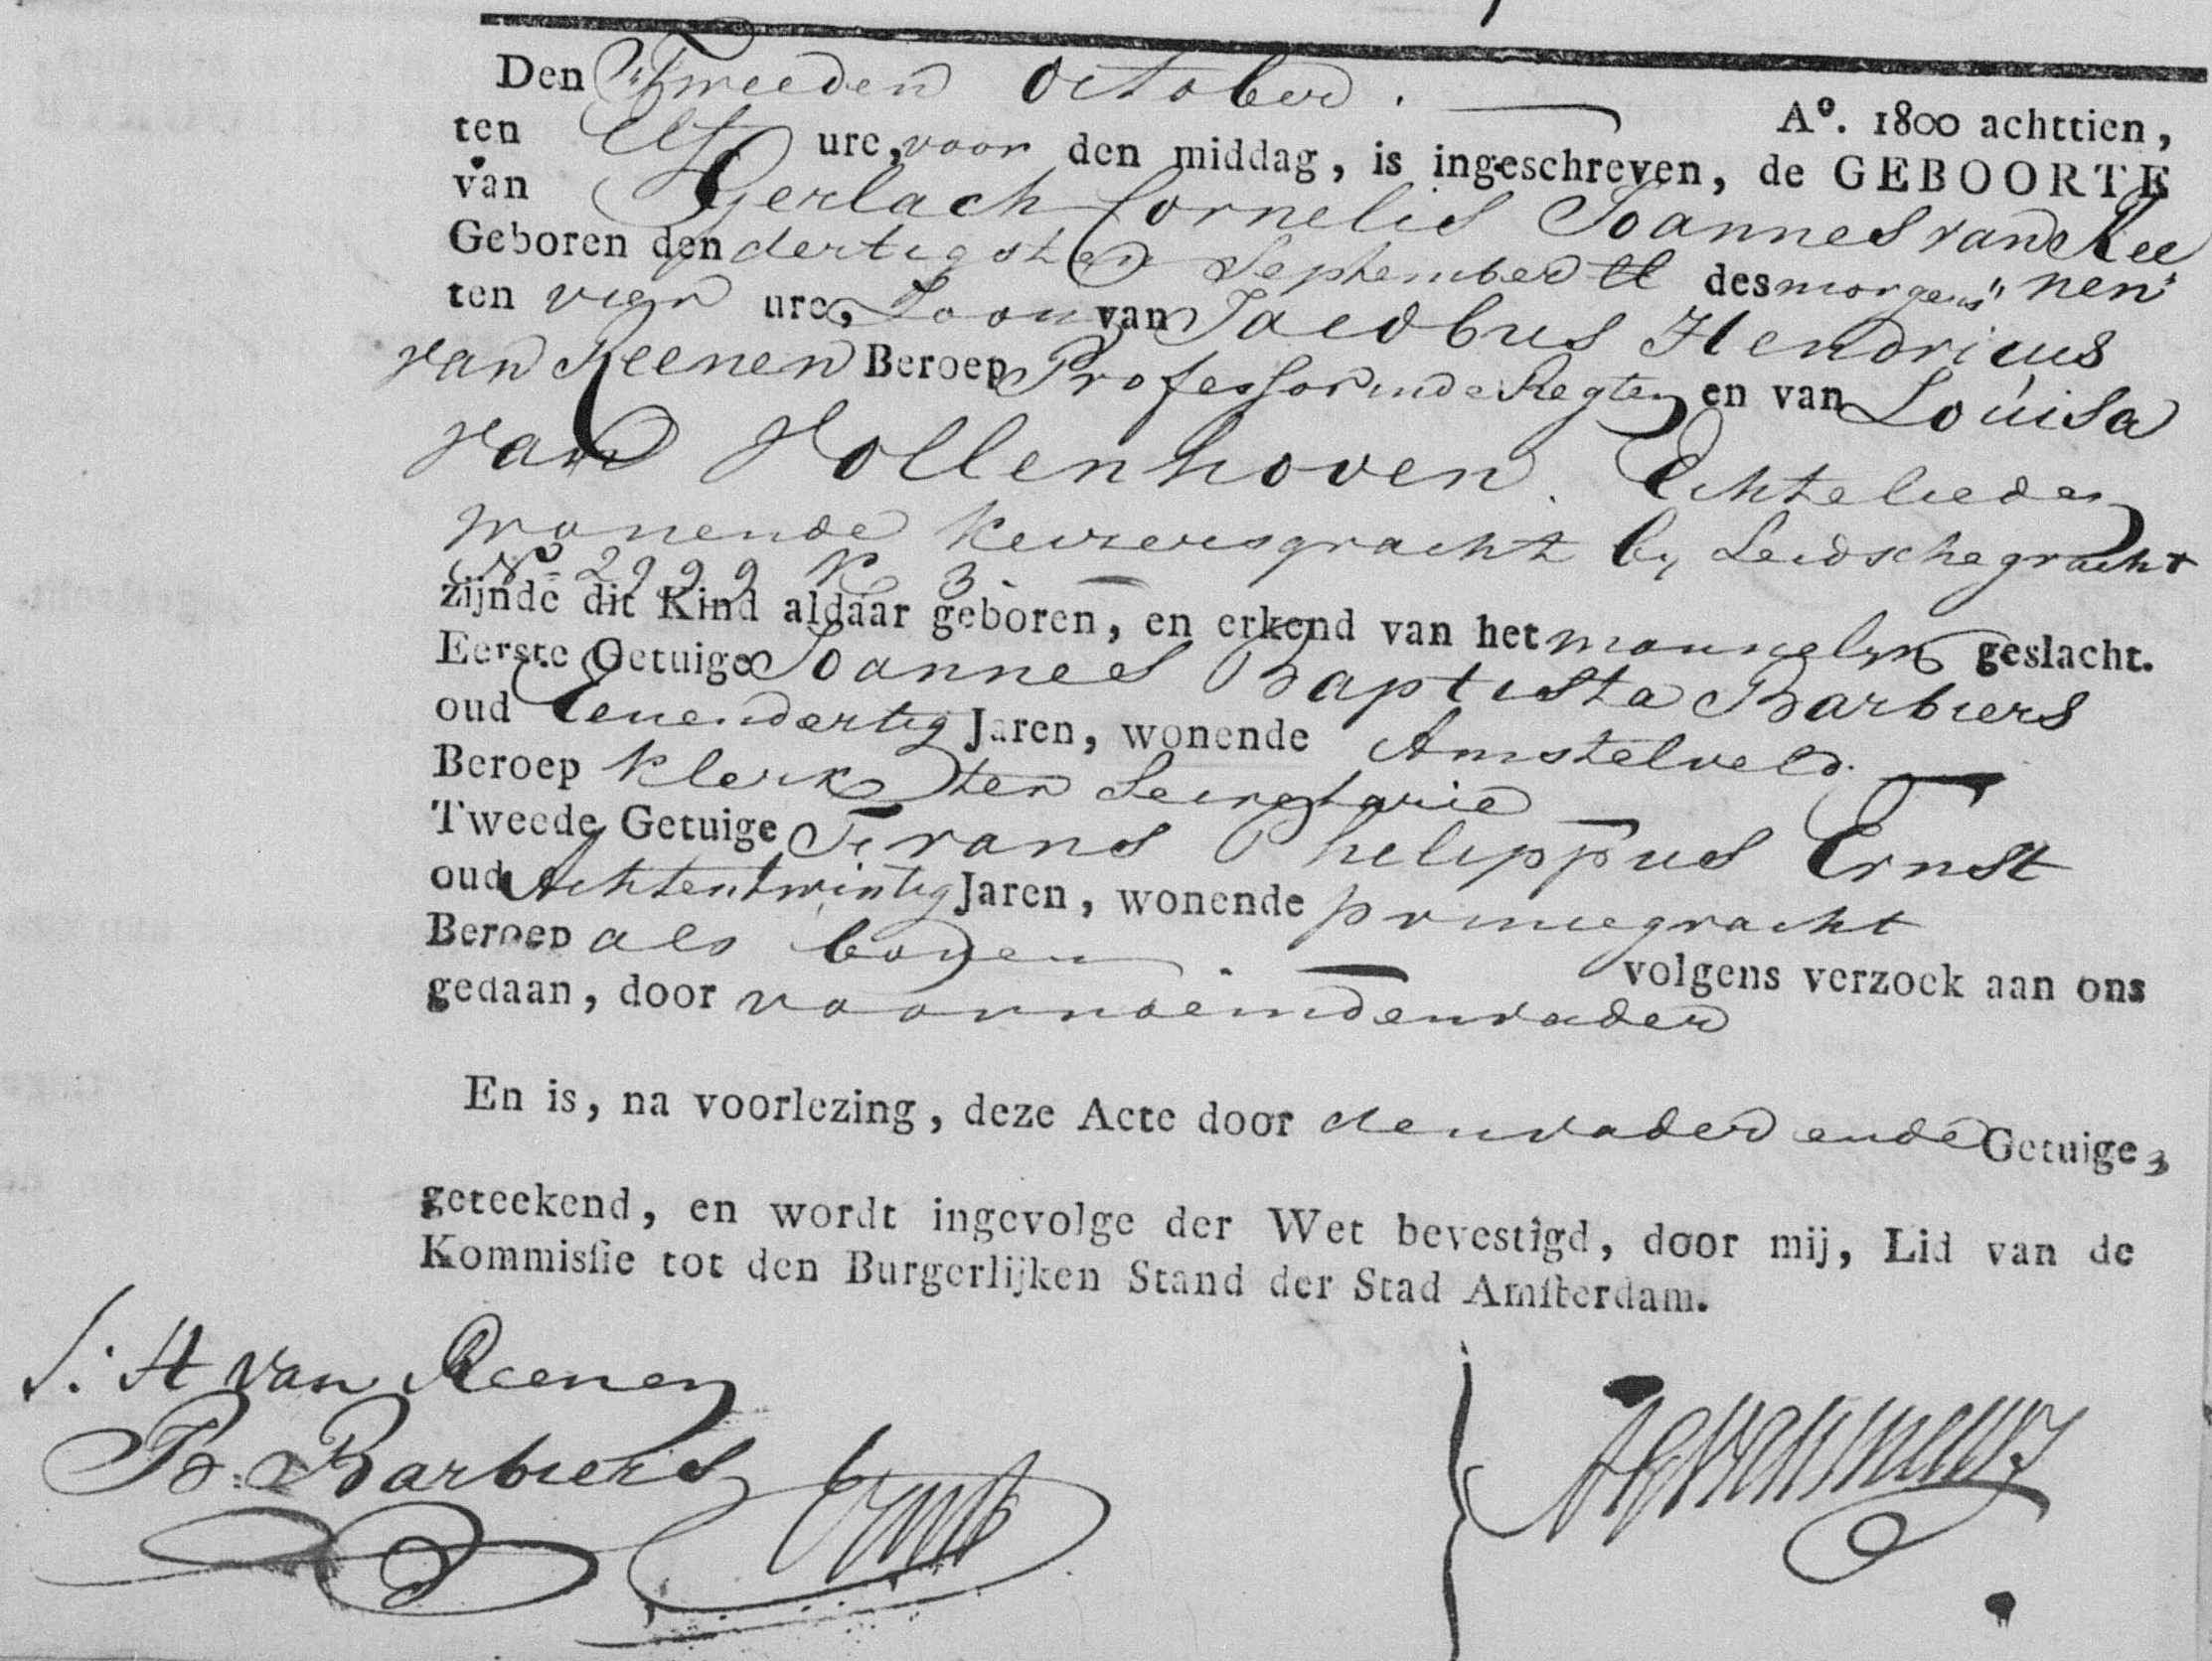 Den Tweeden October. A°. 1800 achttien,
ten Elf ure, voor den middag, is ingeschreven, de GEBOORTE
van Gerlach Cornelis Joannes van Ree
nen
Geboren den dertigsten September ll des morgens
ten vier ure, Zoon van Jacobus Hendricus
van Reenen Beroep Professor in de Regten en van Louisa
van Vollenhoven. Echtelieden
wonende Keizersgracht by Leidschegracht
N° 2999 K 3.
zijnde dit Kind aldaar geboren, en erkend van het mannelyk geslacht.
Eerste Getuige Joannes Baptista Barbiers
oud Eenendertig Jaren, wonende Amstelveld.
Beroep Klerk ter Secretarie
Tweede Getuige Frans Philippus Ernst
oud Achtentwintig Jaren, wonende princegracht
Beroep als boven volgens verzoek aan ons
gedaan, door voornoemden vader
En is, na voorlezing, deze Acte door den vader en de Getuige,
geteekend, en wordt ingevolge der Wet bevestigd, door mij, Lid van de
Kommissie tot den Burgerlijken Stand der Stad Amsterdam.
J. H van Reenen
B. Barbiers
Ernst